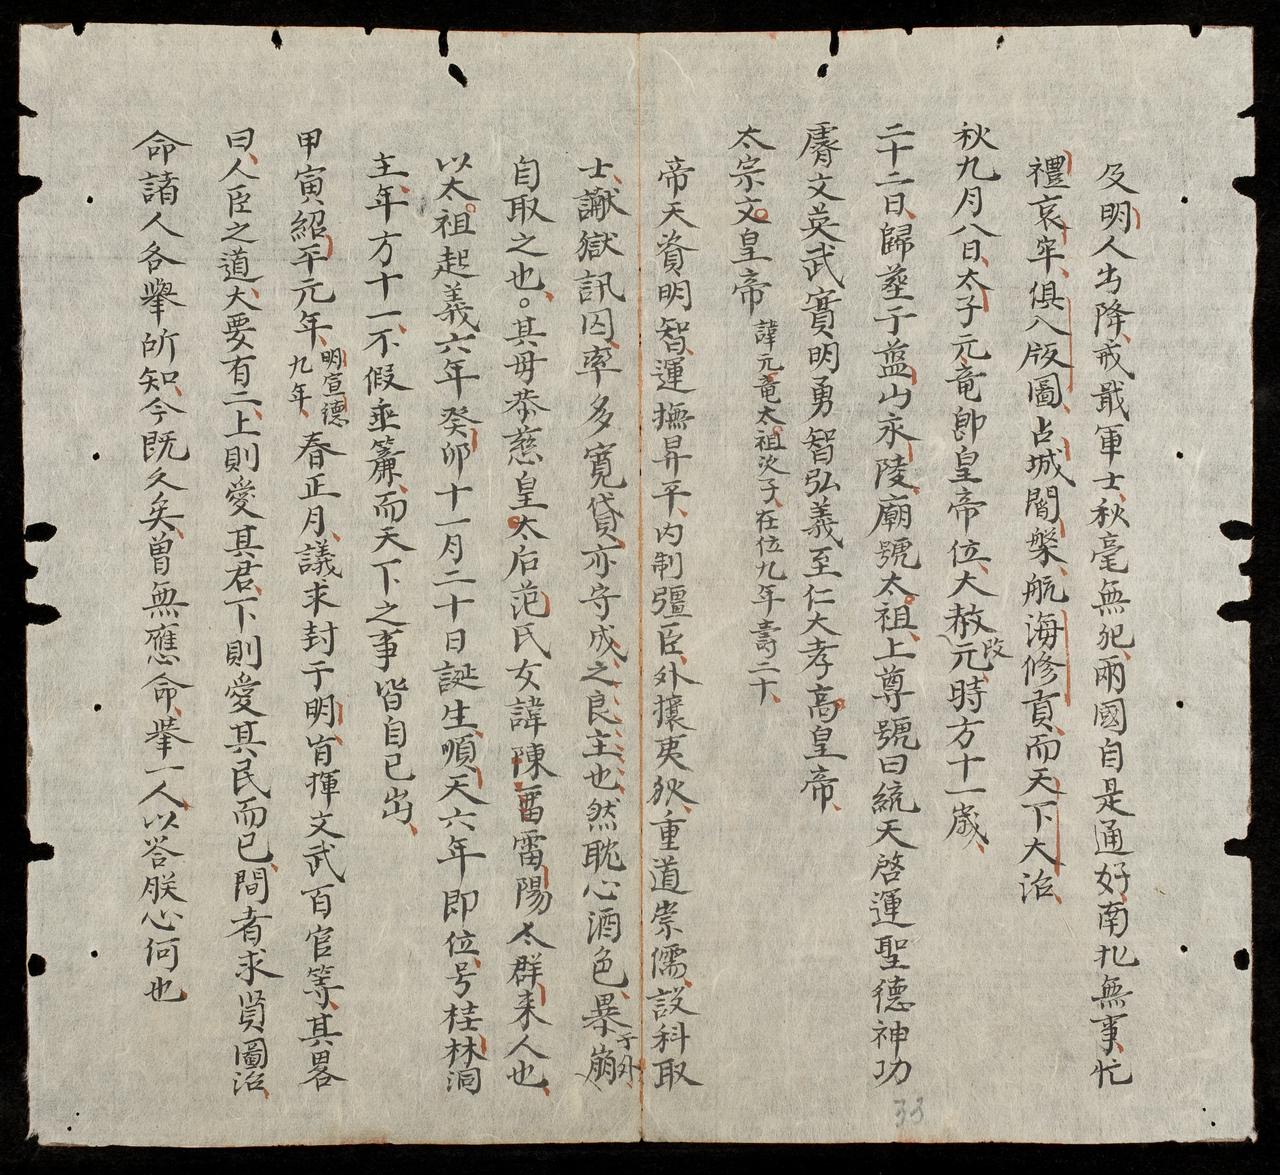 及明人出降戒戢軍士秋毫無犯兩國自是通好南北無事忙
禮哀牢俱入版圖占城闍槃航海修貢而天下大治
秋九月八日太子元竜即皇帝位大赦改元時方十一歲
二十二日歸塟于藍山永陵廟號太祖上尊號曰統天啓運聖德神功
睿文英武寬明勇智弘義至仁大孝高皇帝
太宗文皇帝諱元竜太祖次子在位九年壽二十
帝天資明智運撫昇平内制彊臣外攘夷狄重道崇儒設科取
士讞獄訊囚率多寬貸亦守成之良主也然耽心酒色畢崩于外
自取之也。其母恭慈皇太后范氏女諱陳雷陽太群來人也
以太祖起義六年癸卯十一月二十日誕生順天六年即位号桂林洞
主年方十一不假垂簾而天下之事皆自己出
甲寅紹平元年明宣德九年春正月議求封于明旨揮文武百官等其畧
曰人臣之道大要有二上則愛其君下則愛其民而已間者求賢圖治
命諸人各舉所知今既久矣曽無應命举一人以答朕心何也
33